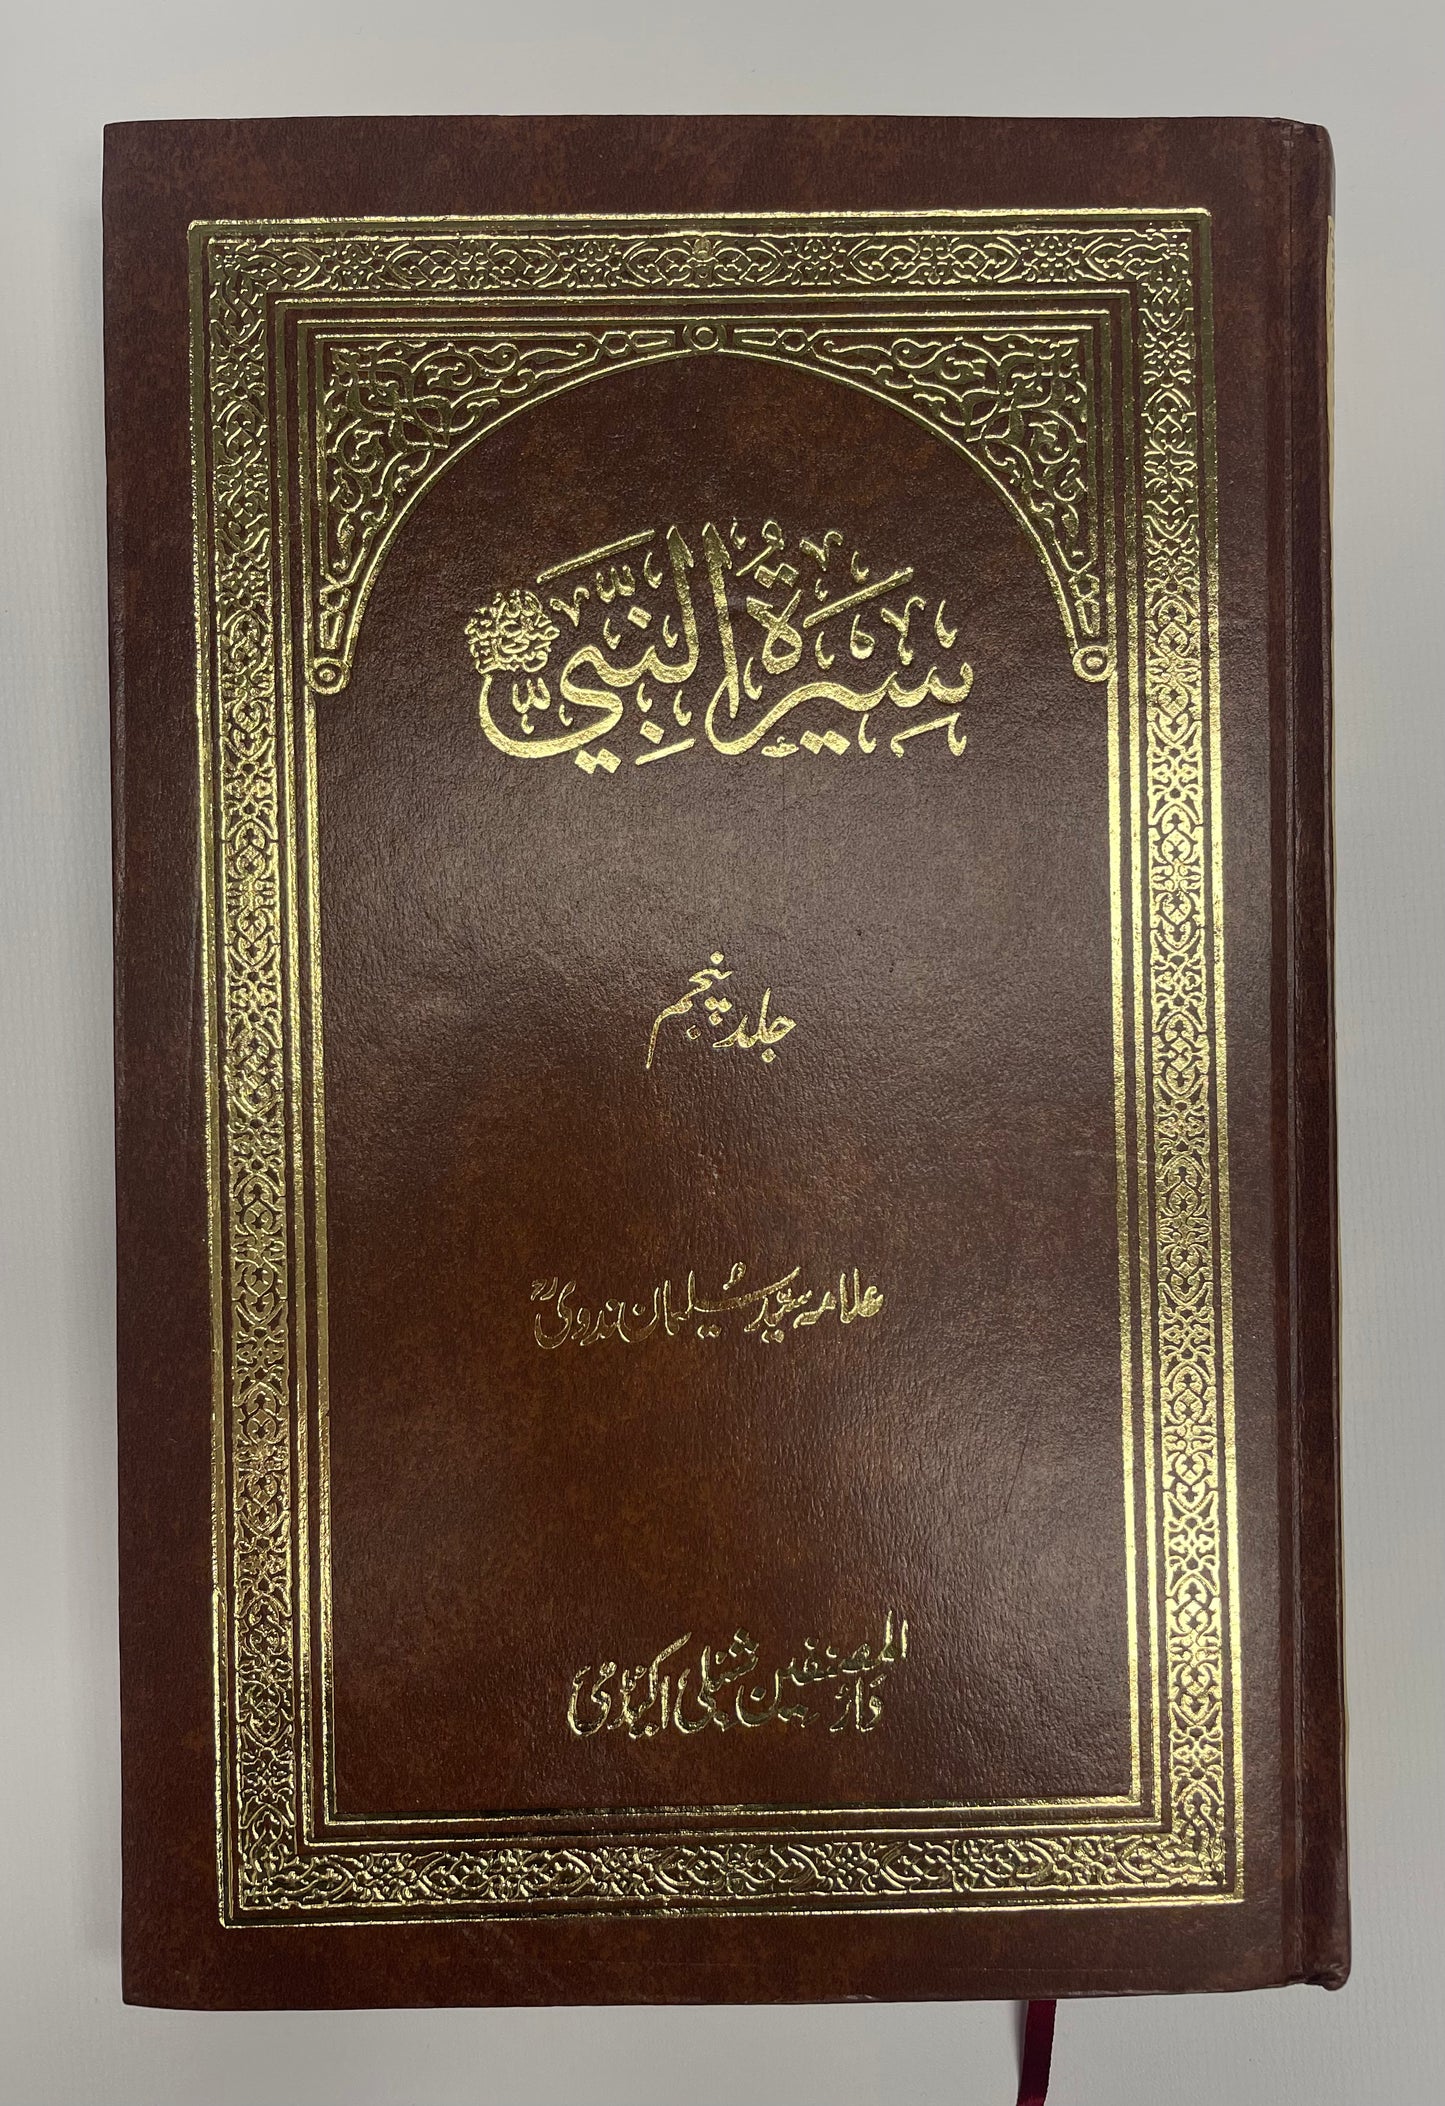 سِيْرَةُ النَّبِيِّ ﷺ
جلد پنجم
علامہ سیّد سُلیمان ندوی رح
دارُ المصنفین شبلی اکیڈمی